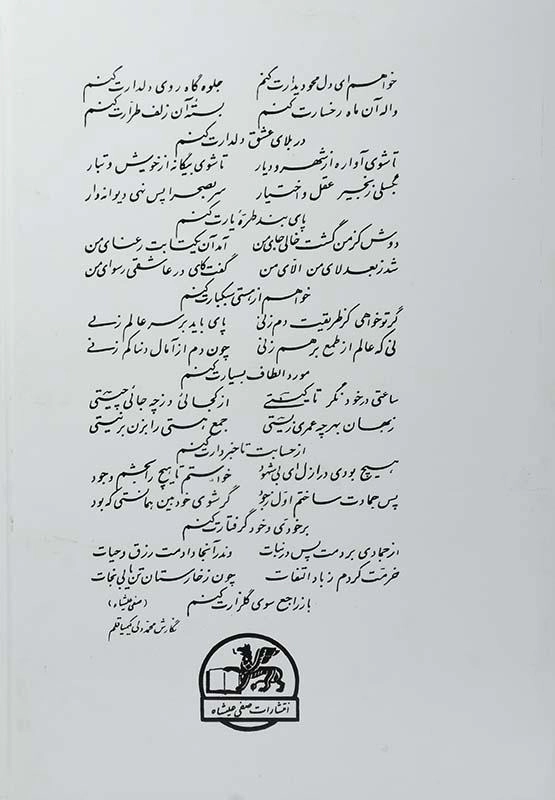 خواهم ای دل محو دیدارت کنم جلوه گاه روی دلدارت کنم
واله آن ماه رخسارت کنم بستهٔ آن زلف طرارت کنم
در بلای عشق دلدارت کنم
تا شوی آواره از شهر و دیار تا شوی بیگانه از خویش و تبار
بگسلی زنجیر عقل و اختیار سر بصحرا پس نهی دیوانه وار
پای بند طرهٔ یارت کنم
دوش کز من گشت خالی جای من آمد آن یکتا بت رعنای من
شد ز بعد لای من الّای من گفت کای در عاشقی رسوای من
خواهم از هستی سبکبارت کنم
گر تو خواهی کز طریقت دم زنی پای باید بر سر عالم زنی
نی که عالم از طمع بر هم زنی چون دم از آمال دنیا کم زنی
مورد الطاف بسیارت کنم
ساعتی در خود نگر تا کیستی از کجائی وز چه جائی چیستی
در جهان بهر چه عمری زیستی جمع هستی را بزن بر نیستی
از حسابت تا خبردارت کنم
هیچ بودی در ازل ای بی شهود خواستم تا هیچ را بخشم وجود
پس جمادت ساختم اول ز جود گر شوی خودبین همانستی که بود
بر خودی خود گرفتارت کنم
از جمادی بردمت پس در نبات وندر آنجا دادمت رزق و حیات
خرمت کردم ز باد التفات چون ز خارستان تن یابی نجات
باز راجع سوی گلزارت کنم (صفی علیشاه)
نگارش محمد ولی کیمیا قلم
انتشارات صفی علیشاه